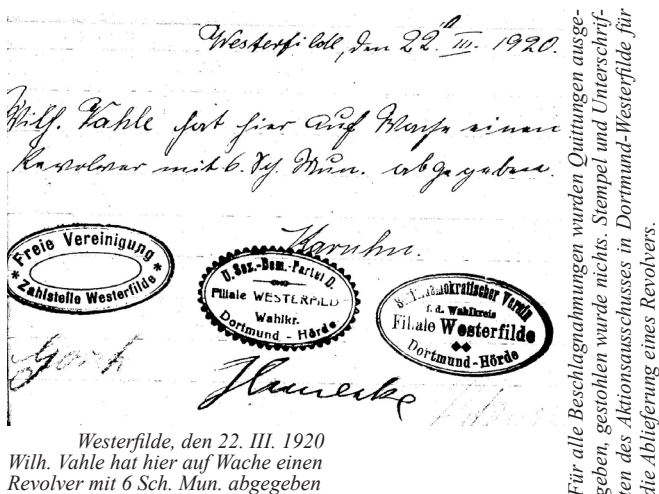 Westerfilde, den 22. III. 1920.
Wilh. Vahle hat hier auf Wache einen
Revolver mit 6. Sch. Mun. abgegeben.
Freie Vereinigung
* Zahlstelle Westerfilde *
U. Soz.-Dem.-Partei D.
Filiale WESTERFILD
Wahlkr.
Dortmund - Hörde
Sozialdemokratischer Verein
f. d. Wahlkreis
Filiale Westerfilde
Dortmund-Hörde
Westerfilde, den 22. III. 1920
Wilh. Vahle hat hier auf Wache einen
Revolver mit 6 Sch. Mun. abgegeben
Für alle Beschlagnahmungen wurden Quittungen ausge-
geben, gestohlen wurde nichts. Stempel und Unterschrif-
ten des Aktionsausschusses in Dortmund-Westerfilde für
die Ablieferung eines Revolvers.